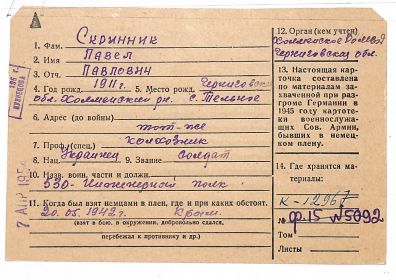 1. Фам. Скринник
2. Имя Павел
3. Отч. Павлович
4. Год рожд. 1911 г. 5. Место рожд. Черниговск.
обл. Холменский рн. с.
6. Адрес (до войны)
тот-же
7. Проф. (спец.) колхозник
8. Нац. Украинец 9. Звание Солдат
10. Назв. воин. части и должн.
530- Инженерный полк
11. Когда был взят немцами в плен, где и при каких обстоят.
20. 05. 1942 г. Крым.
(взят в бою, в окружении, добровольно сдался,
перебежал к противнику и др.)
12. Орган (кем учтен)
Холменское
Черниговская обл.
13. Настоящая кар-
точка составлена
по материалам за-
хваченной при раз-
громе Германии в
1945 году картоте-
ки военнослужа-
щих Сов. Армии,
бывших в немец-
ком плену.
14. Где хранятся ма-
териалы:
К-12967
№ ф.15 №5092
Том
Листы
7 АПР 195
КУЗНЕЦОВА